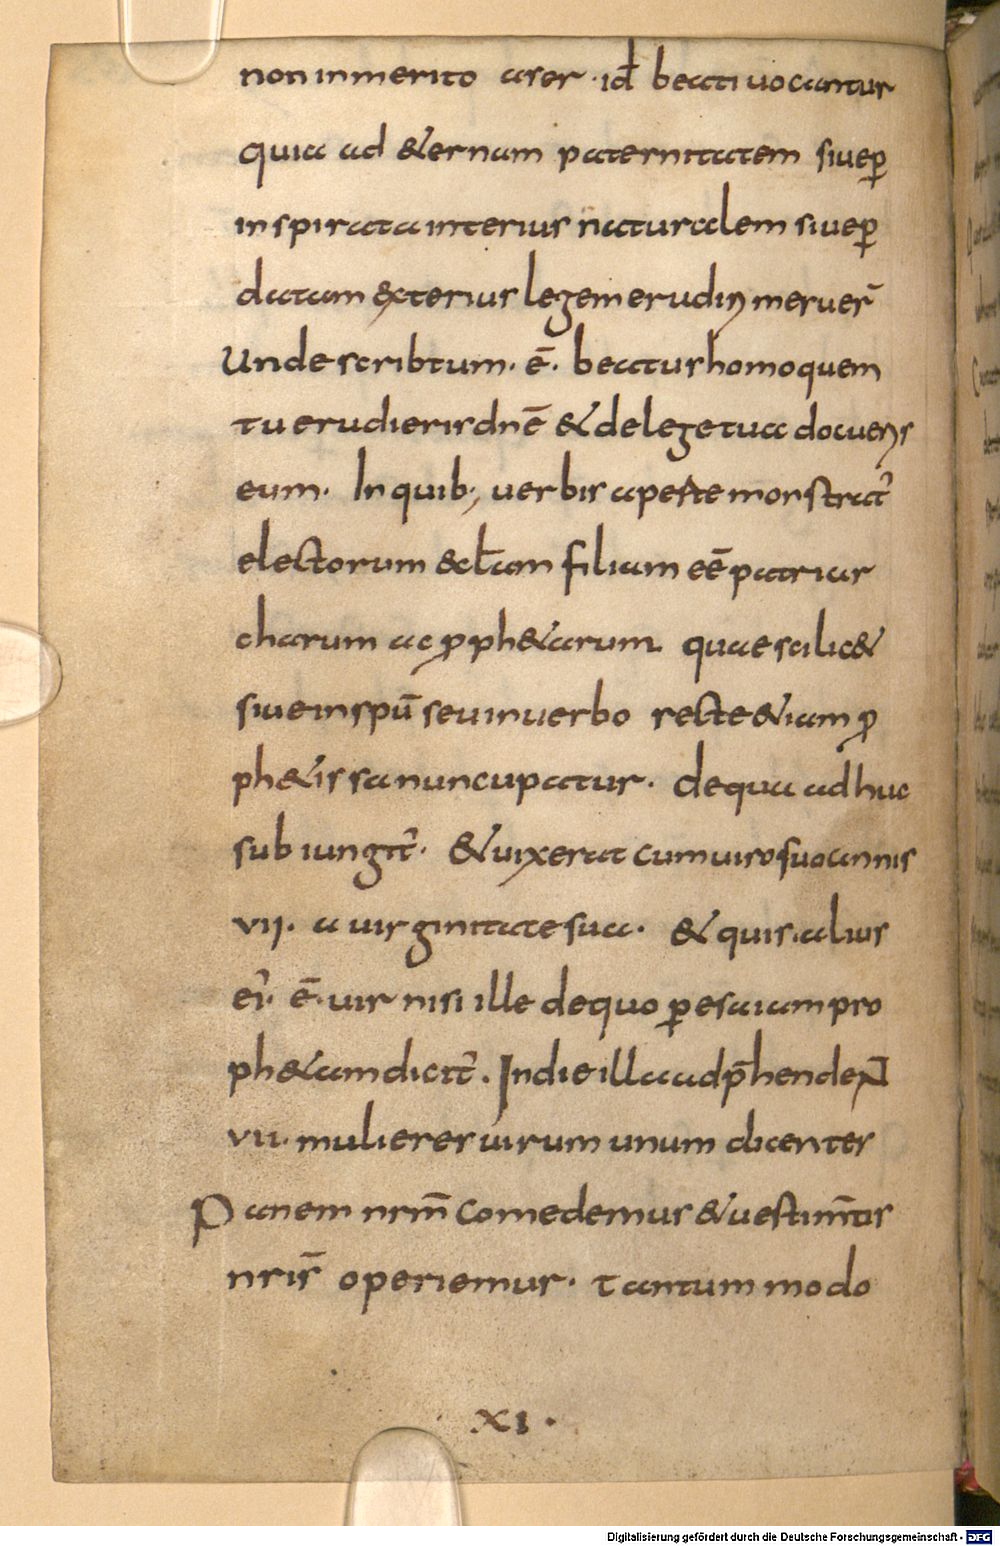 non inmerito aser · id̄ beati uocantur
quia ad &ernam paternitatem siue ꝑ
inspirata interius naturalem siue ꝑ
datam exterius legem erudiri meruer̄
Unde scribtum · ē · beatus homo quem
tu erudieris dn̄e & de lege tua docueris
eum · In quib; uerbis aperte monstrat̉
electorum &cl̄am filiam eē patriar
charum ac ꝓph&arum quae scilic&
siue in spū seu in uerbo recte &iam ꝓ
ph&issa nuncupatur · de qua adhuc
subiungit̉ · &uixerat cum uiro suo annis
vii · a uirginitate sua · & quis alius
eỉ · ē · uir nisi ille de quo ꝑ esaiam pro
ph&am dicit̉ · In die illa adp̄henderNT
vii · mulieres uirum unum dicentes
Panem nrm̄ comedemus &uestim̄tis
nris̄ operiemur · tantum modo
XI ·
Digitalisierung gefördert durch die Deutsche Forschungsgemeinschaft - DFG